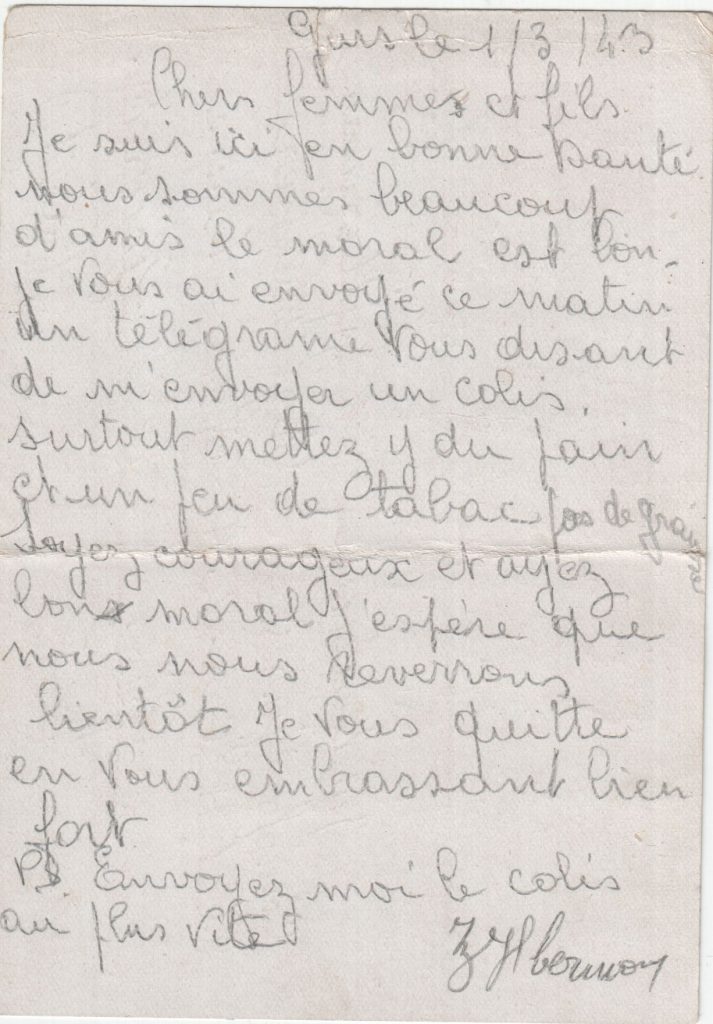 Gurs le 1/3/43
Chers femmes et fils
Je suis ici en bonne santé
nous sommes beaucoup
d'amis le moral est bon.
Je vous ai envoyé ce matin
un télégrame vous disant
de m'envoyer un colis,
surtout mettez y du pain
et un peu de tabac pas de graisse
Soyez courageux et ayez
bons moral j'espére que
nous nous reverrons
bientôt Je vous quitte
en vous embrassant bien
fort
PS Envoyez moi le colis
au plus vite